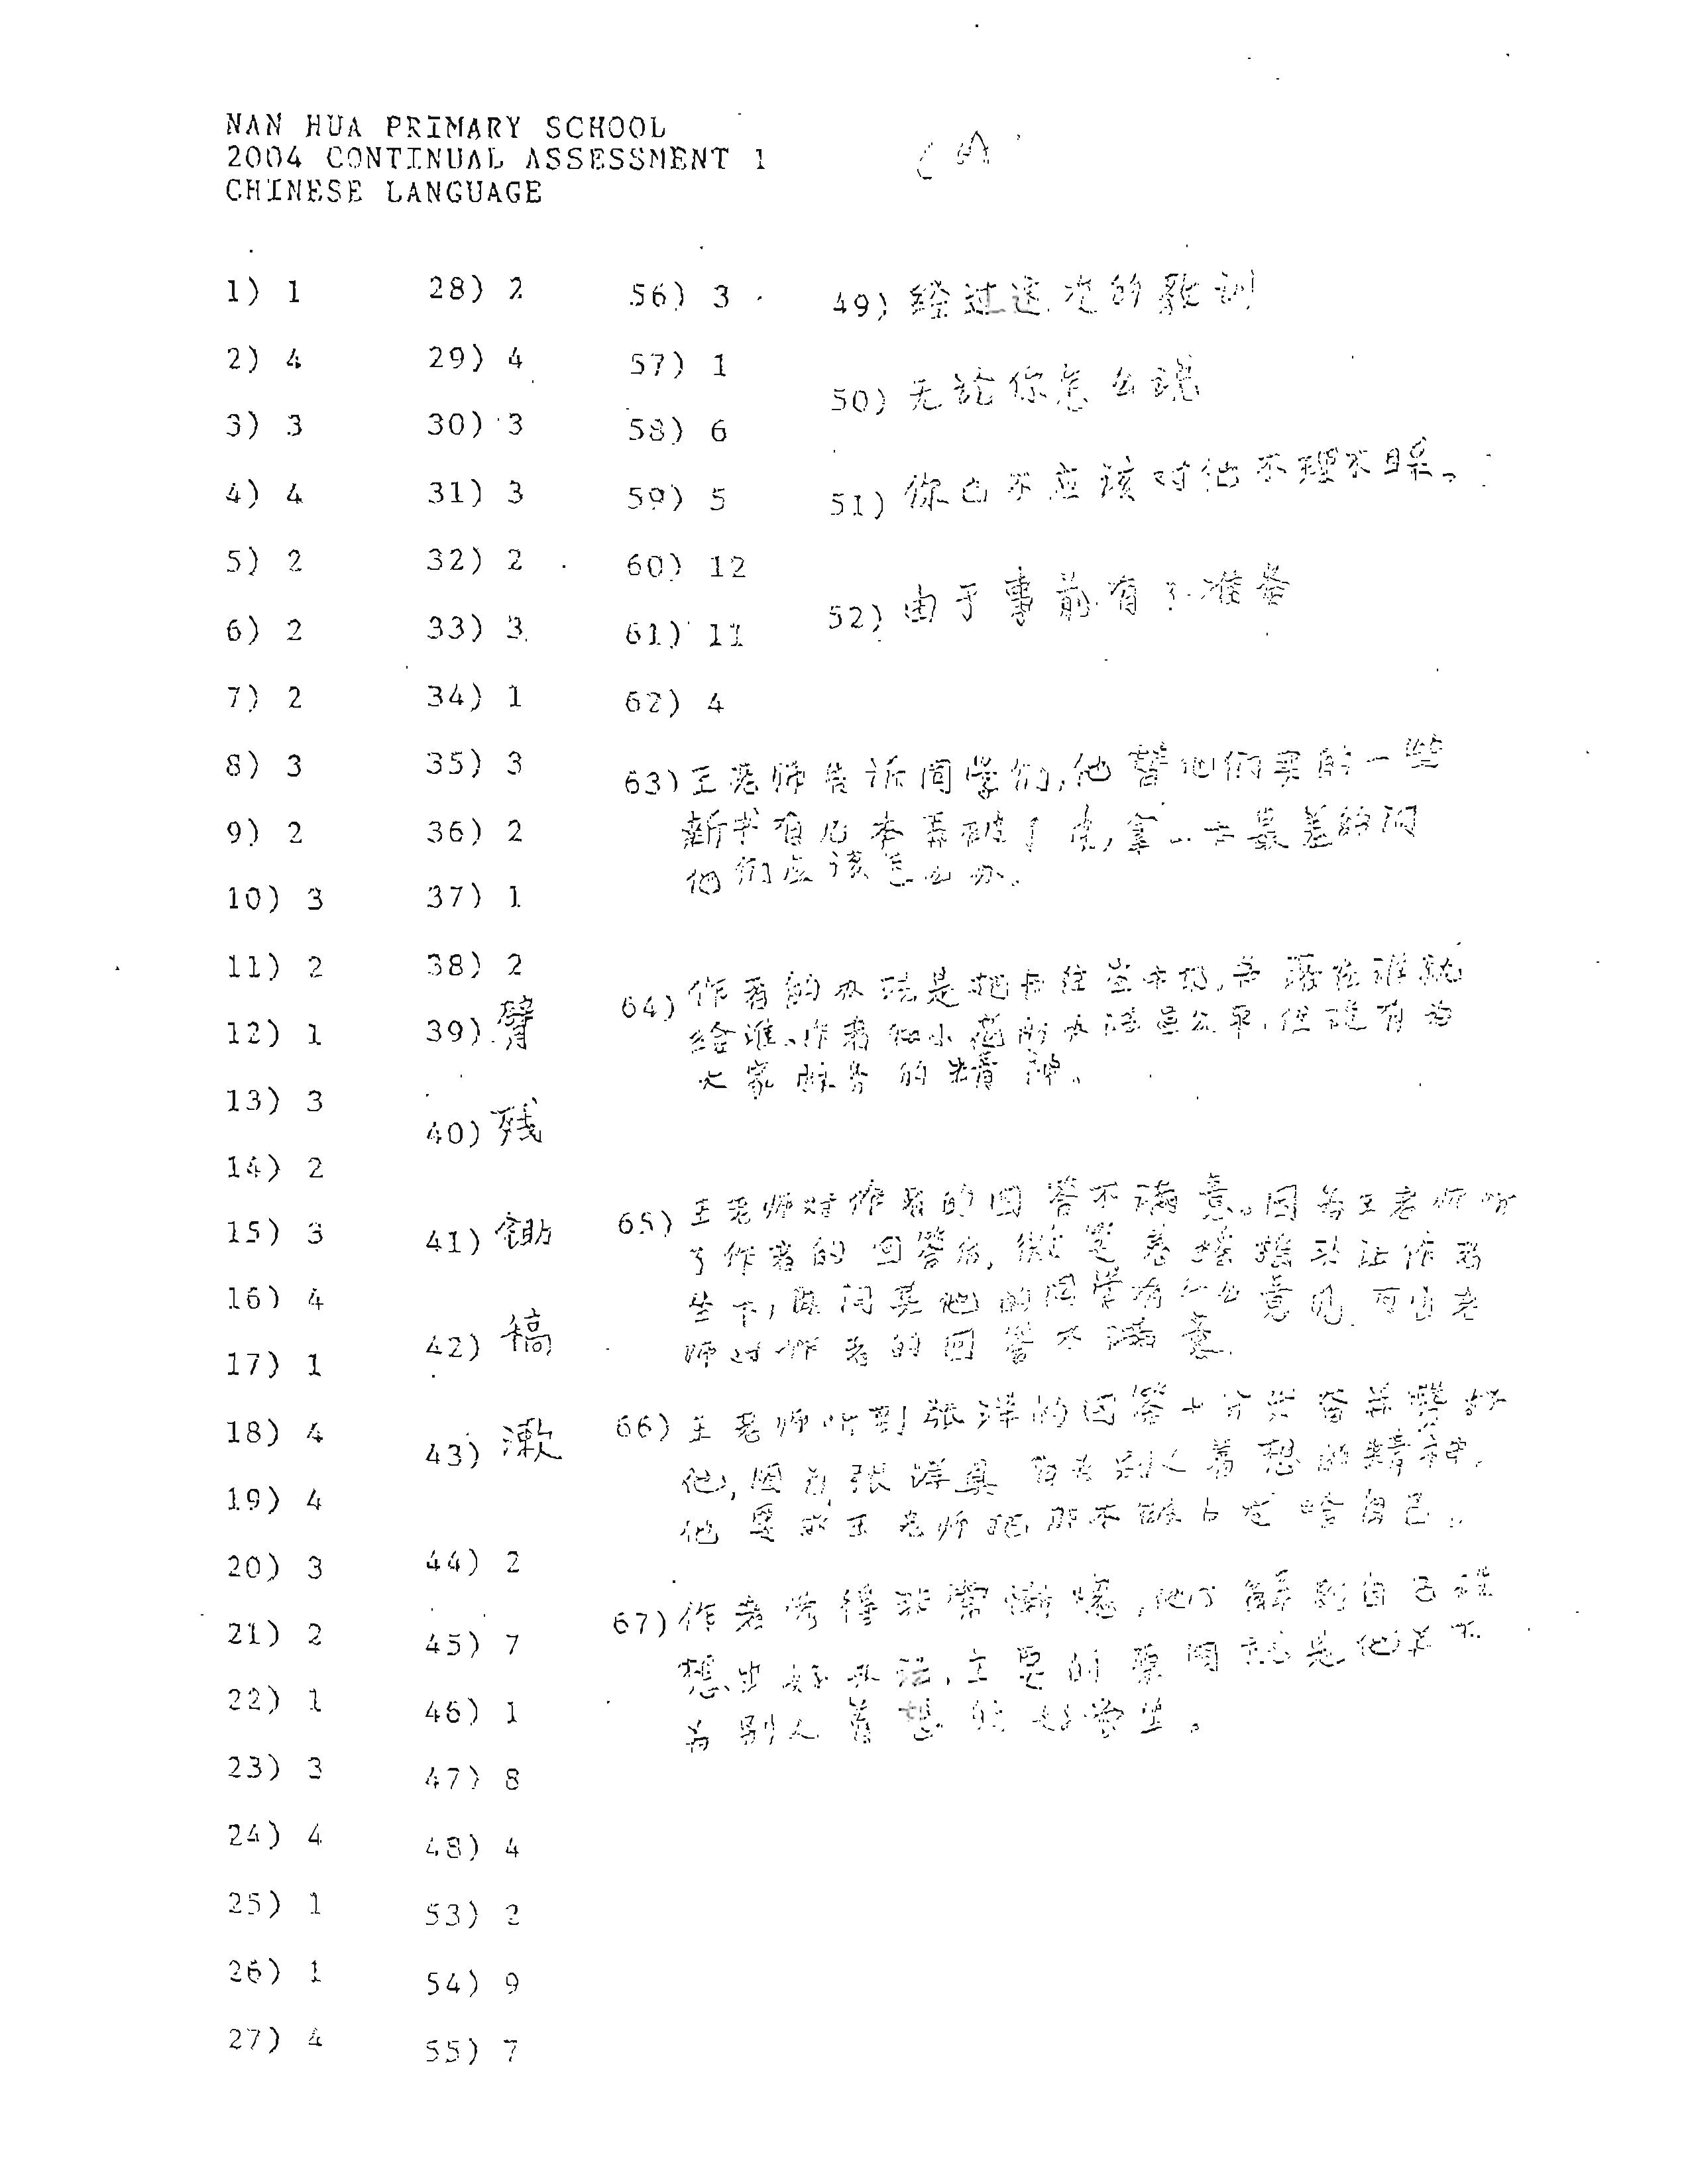 NAN HUA PRIMARY SCHOOL
2004 CONTINUAL ASSESSMENT 1
CHINESE LANGUAGE
1) 1
2) 4
3) 3
4) 4
5) 2
6) 2
7) 2
8) 3
9) 2
10) 3
11) 2
12) 1
13) 3
14) 2
15) 3
16) 4
17) 1
18) 4
19) 4
20) 3
21) 2
22) 1
23) 3
24) 4
25) 1
26) 1
27) 4
28) 2
29) 4
30) 3
31) 3
32) 2
33) 3
34) 1
35) 3
36) 2
37) 1
38) 2
39) 臂
40) 残
41) 锄
42) 稿
43) 漱
44) 2
45) 7
46) 1
47) 8
48) 4
53) 2
54) 9
55) 7
56) 3
57) 1
58) 6
59) 5
60) 12
61) 11
62) 4
49) 经过这次的教训
50) 无论你怎么说
51) 你也不应该对他不理不睬。
52) 由于事前有了准备
63) 王老师告诉同学们,他替他们买的一些
新书有几本弄破了皮,拿一本最差的问
他们应该怎么办。
64) 作者的办法是把卡住当中扔,书落在谁就
给谁。作者和小范的办法虽公平,但没有为
大家服务的精神。
65) 王老师对作者的回答不满意。因为王老师听
了作者的回答后,微笑着摇摇头让作者
坐下,既问其他的同学有什么意见,可出老
师对作者的回答不满意。
66) 王老师听到张洋的回答十分兴奋并赞好
他,因为张洋真有为别人着想的精神,
他要求王老师把那本破 给自己。
67) 作者觉得非常惭愧,他了解到自己没
想出好办法,主要的原因就是他并不
为别人着想的好学生。